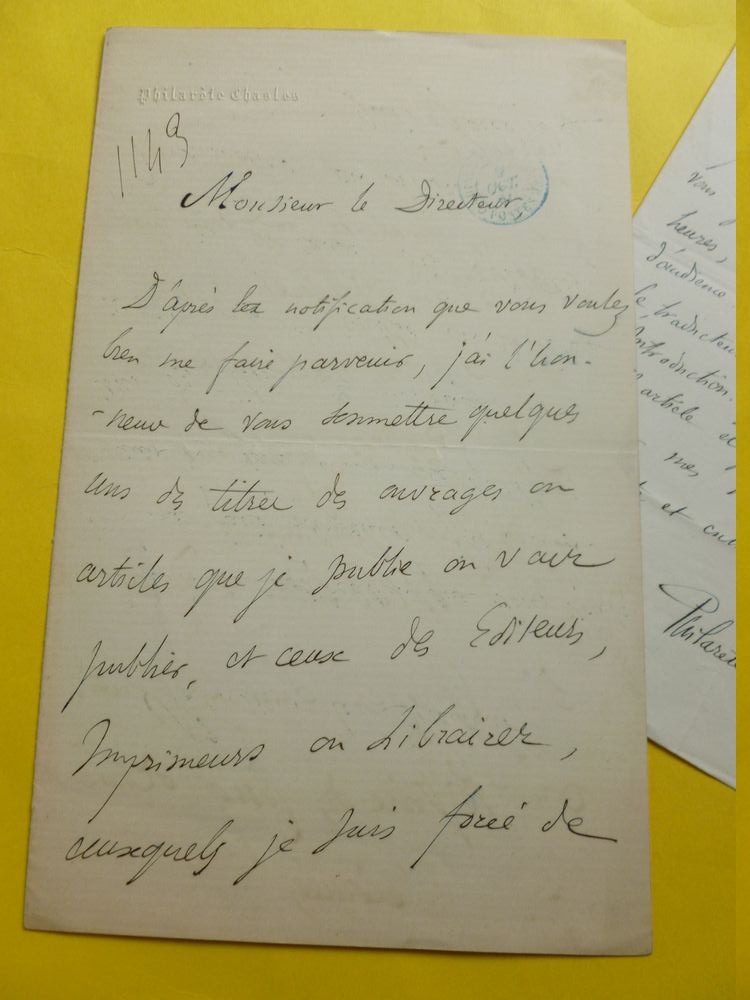 Philarète Chasles
Monsieur le Directeur,
D'après la notification que vous voulez
bien me faire parvenir, j'ai l'hon-
-neur de vous soumettre quelques
uns des titres des ouvrages ou
articles que je publie ou vais
publier, et ceux des Editeurs,
Imprimeurs ou Libraires,
auxquels je suis forcé de
vous
heures,
d'audience
le traducteur
Introduction.
article et
mes
et
Philarète